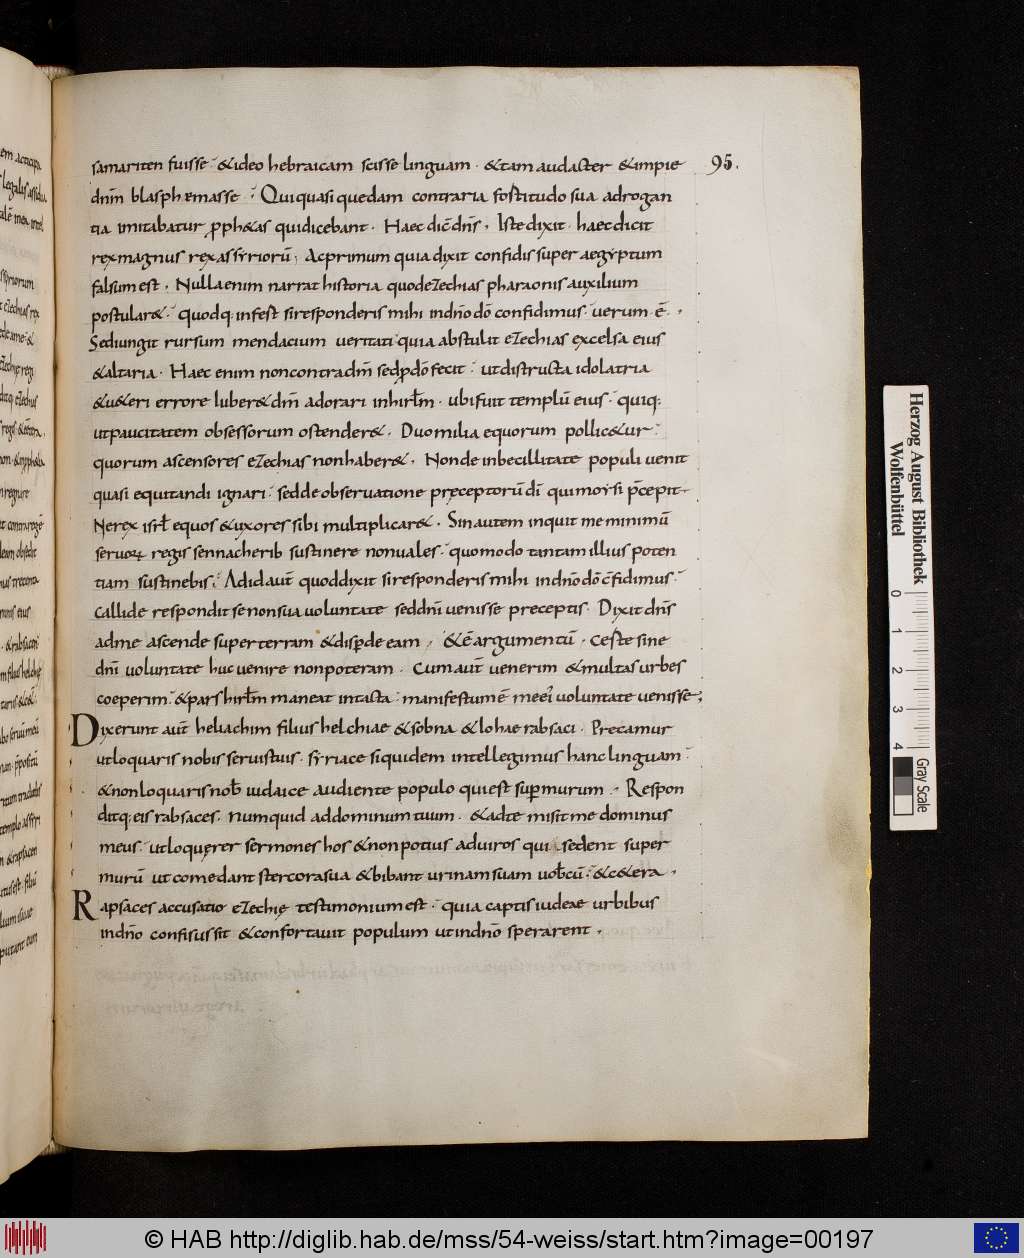 samariten fuisse. &ideo hebraicam scisse linguam. &tam audacter &impie 95.
dnm̄ blasphemasse. Quiquasi quedam contraria fostitudo sua adrogan
tia imitabatur pph&as quidicebant. Haec dic̄ dn̄s. Iste dixit. haec dicit
rexmagnus rexassyrioru᷒. Acprimum quia dixit confidis super aegyptum
falsum est. Nulla enim narrat historia quodezechias pharaonis auxilium
postular&. quodq; infest siresponderis mihi indn̄o dō confidimus. uerum ē.
Sediungit rursum mendacium ueritati. quia abstulit ezechias excelsa eius
&altaria. Haec enim noncontradm̄ sedpdō fecit. utdistructa idolatria
&u&eri errore luber&dm̄ adorari inhirl̄m. ubifuit templū eius. quiq;
utpaucitatem obsessorum ostender&. Duomilia equorum pollic&ur.
quorum ascensores ezechias nonhaber&. Nonde inbecillitate populi uenit
quasi equitandi ignari. sedde obseruatione pręceptorū dī quimoysi p̄cepit.
Nerex isrl̄ equos &uxores sibi multiplicar&. Sinautem inquit meminimū
seruoꝝ regis sennacherib sustinere nonuales. quomodo tantam illius poten
tiam sustinebis; Adid aut̄ quoddixit siresponderis mihi indn̄o dō c̄fidimus.
callide respondit senonsua uoluntate seddn̄i uenisse preceptis. Dixit dn̄s
adme ascende superterram &dispde eam. &ē argumentū. Certe sine
dn̄i uoluntate huc uenire nonpoteram. Cum aut̄ uenerim &multas urbes
coeperim. &pars hirl̄m maneat intacta. manifestum ē meei uoluntate uenisse;
Dixerunt aut̄ heliachim filius helchiae &sobna &iohae rabsaci. Precamur
utloquaris nobis seruistuis. syriace siquidem intellegimus hanc linguam.
&nonloquaris nob̄ iudaice audiente populo quiest supmurum. Respon
ditq; eis rabsaces. numquid addominum tuum. &adte misit me dominus
meus. utloquęrer sermones hos &nonpotius aduiros qui sedent super
murū ut comedant stercorasua &bibant urinamsuam uob̄cū. &c&era.
Rapsaces accusatio ezechię testimonium est. quia captis iudeae urbibus
indn̄o confisus sit &confortauit populum ut indn̄o sperarent.
Herzog August Bibliothek
Wolfenbüttel
0 1 2 3 4
Gray Scale
© HAB http://diglib.hab.de/mss/54-weiss/start.htm?image=00197